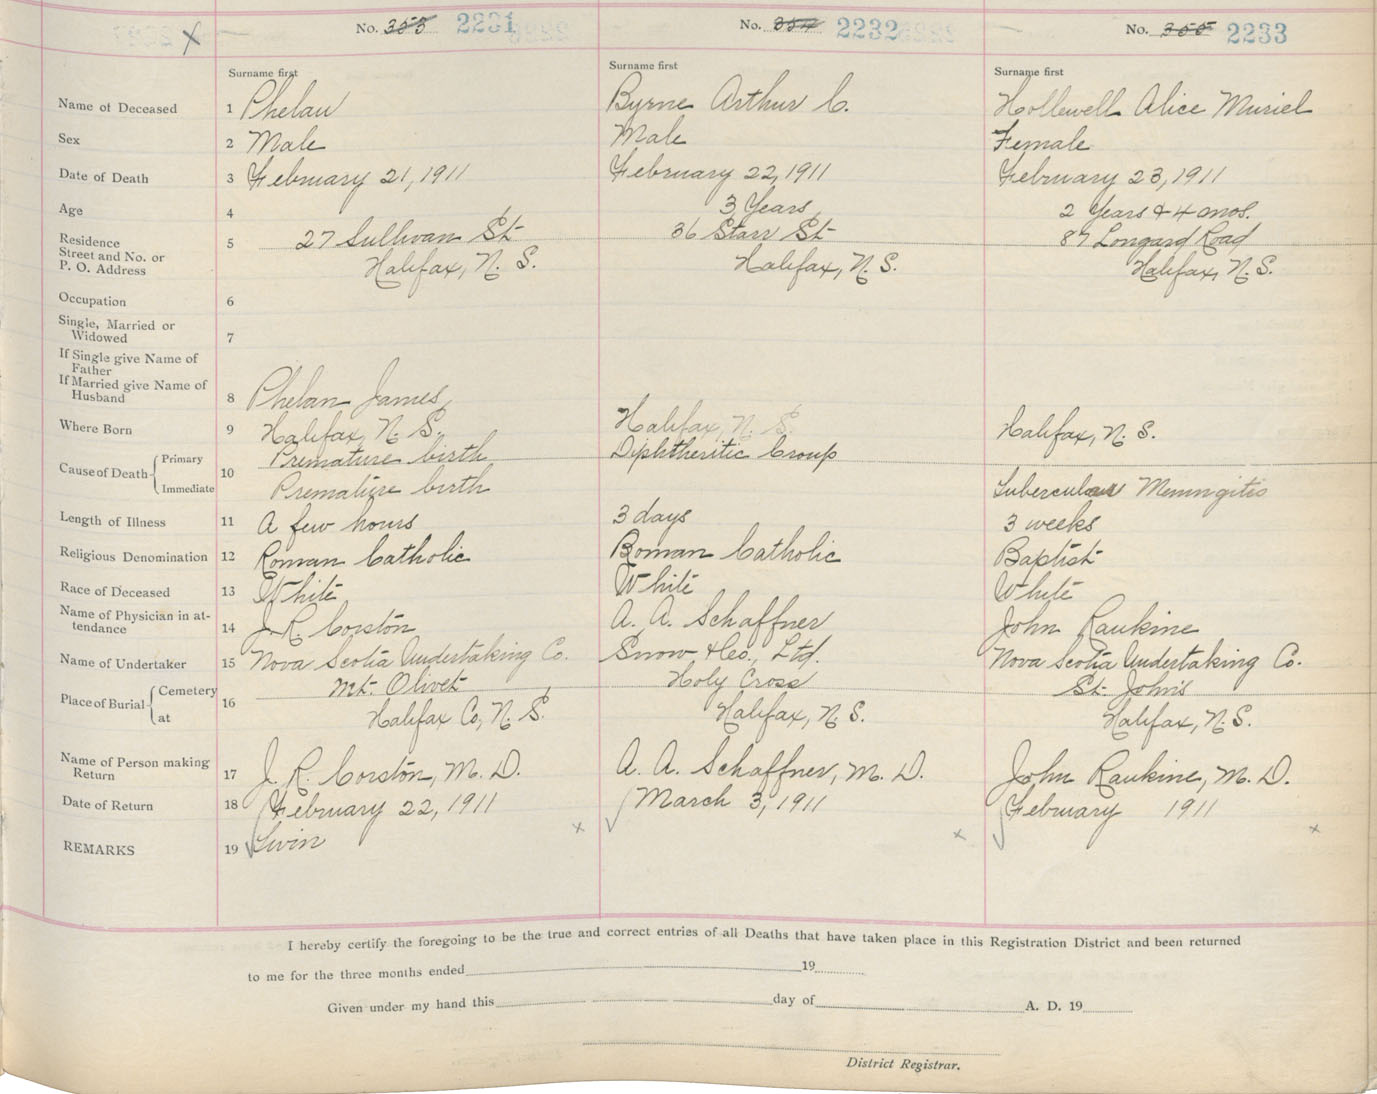 No. 353 2231 No. 354 2232 No. 355 2233
Surname first Surname first Surname first
Name of Deceased 1 Phelan Byrne Arthur C. Hollewell Alice Muriel
Sex 2 Male Male Female
Date of Death 3 February 21, 1911 February 22, 1911 February 23, 1911
Age 4 3 Years 2 Years & 4 mos.
Residence 5 27 Sullivan St 36 Starr St 87 Longard Road
Street and No. or
P. O. Address Halifax, N. S. Halifax, N. S. Halifax, N. S.
Occupation 6
Single, Married or
Widowed 7
If Single give Name of
Father
If Married give Name of
Husband 8 Phelan James
Where Born 9 Halifax, N. S. Halifax, N. S. Halifax, N. S.
Cause of Death 10 Primary Premature birth Diphtheritic Croup
Immediate Premature birth Tubercular Meningitis
Length of Illness 11 A few hours 3 days 3 weeks
Religious Denomination 12 Roman Catholic Roman Catholic Baptist
Race of Deceased 13 White White White
Name of Physician in at-
tendance 14 J. R. Corston A. A. Schaffner John Rankine
Name of Undertaker 15 Nova Scotia Undertaking Co. Snow & Co., Ltd. Nova Scotia Undertaking Co.
Place of Burial 16 Cemetery Mt. Olivet Holy Cross St. John's
at Halifax Co, N. S. Halifax, N. S. Halifax, N. S.
Name of Person making
Return 17 J. R. Corston, M. D. A. A. Schaffner, M. D. John Rankine, M. D.
Date of Return 18 February 22, 1911 March 3, 1911 February 1911
REMARKS 19 Twin
I hereby certify the foregoing to be the true and correct entries of all Deaths that have taken place in this Registration District and been returned
to me for the three months ended 19
Given under my hand this day of A. D. 19
District Registrar.